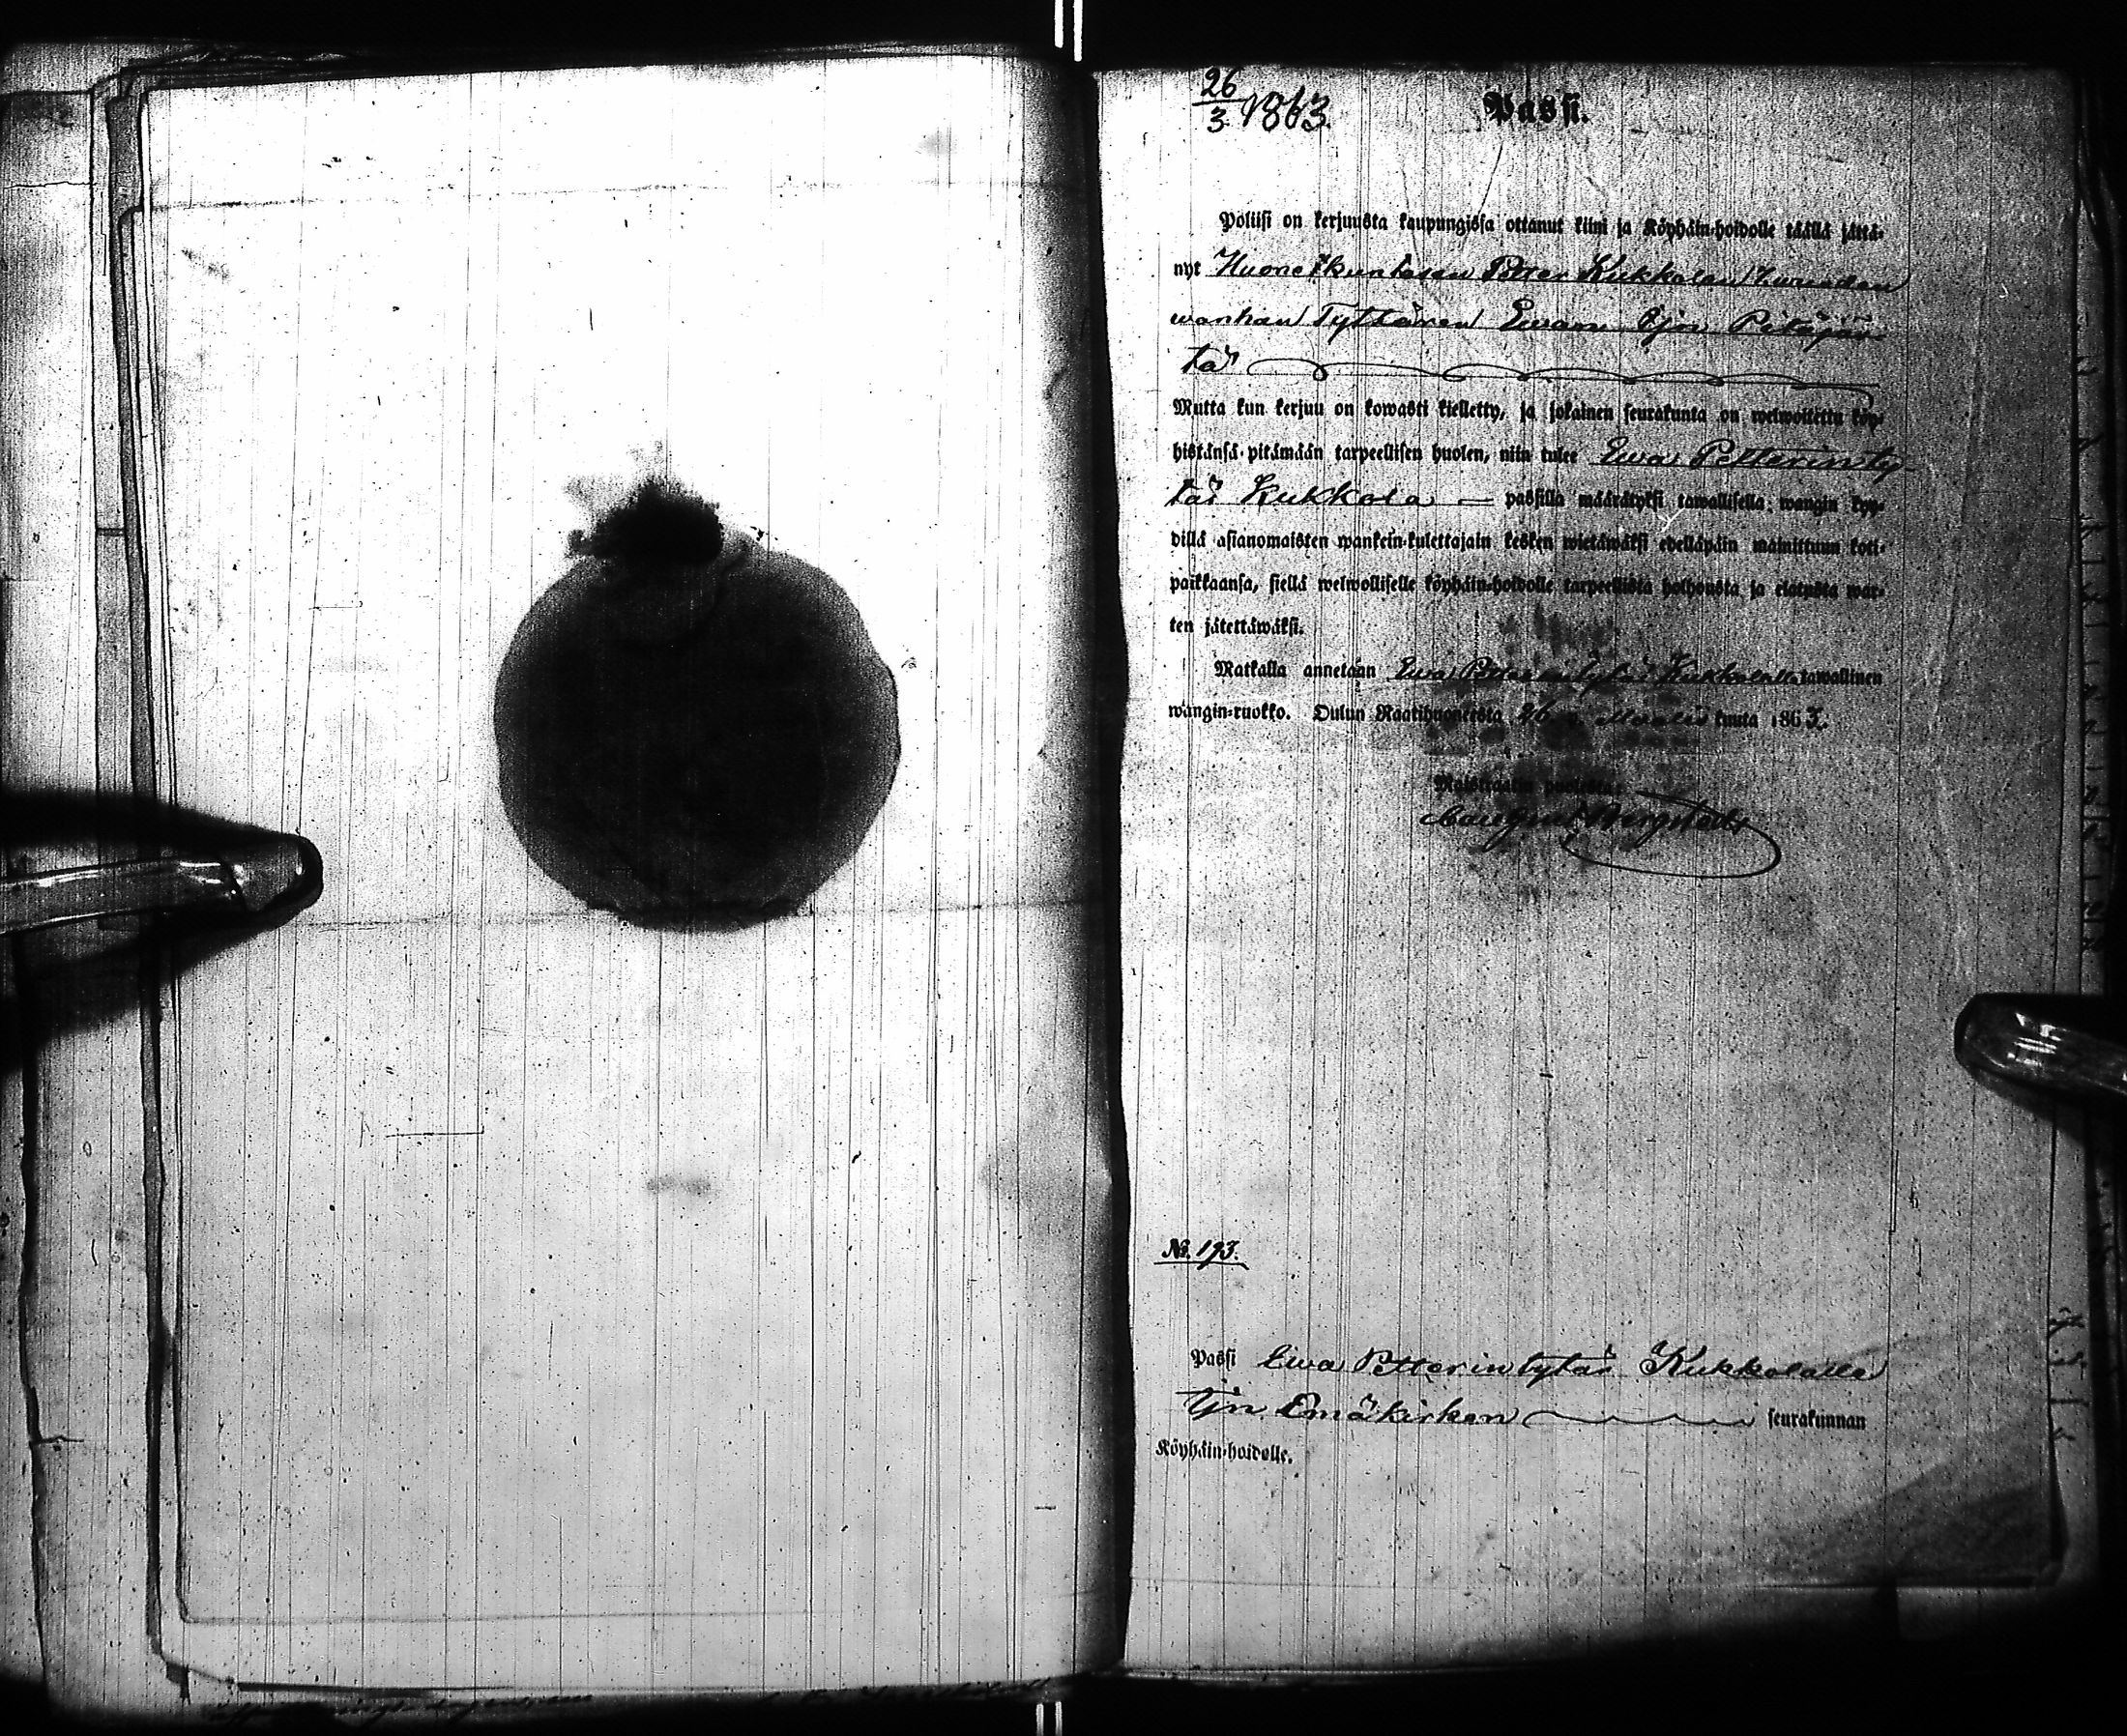 26/3. 1863.
Passi.
Poliisi on kerjuusta kaupungissa ottanut kiini ja Köyhäin-hoidolle täällä jättä-
nyt Huonetkuntasen Petter Kukkolan 7. wuoden
wanhan Tyttären Ewan Ijn Pitäjäs-
tä
Mutta kun kerjuu on kowasti kielletty, ja jokainen seurakunta on welwoitettu köy-
histänsä pitämään tarpeellisen huolen, niin tulee Ewa Petterinty-
tär Kukkola — passilla määrätyksi tawallisella wangin kyy-
dillä asianomaisten wankein-kulettajain kesken wietäwäksi edelläpäin mainittuun koti-
paikkaansa, siellä welwolliselle köyhäin-hoidolle tarpeellista holhousta ja elatusta war-
ten jätettäwäksi.
Matkalla annetaan Ewa Petterintytär Kukkolalle tawallinen
wangin-ruokko. Oulun Raatihuoneesta 26 p. Maalis kuuta 1863.
Maistraatin puolesta:
Bergstedt
No. 193.
Passi Ewa Petterintytär Kukkolalle
Ijn Emäkirkon seurakunnan
Köyhäin-hoidolle.